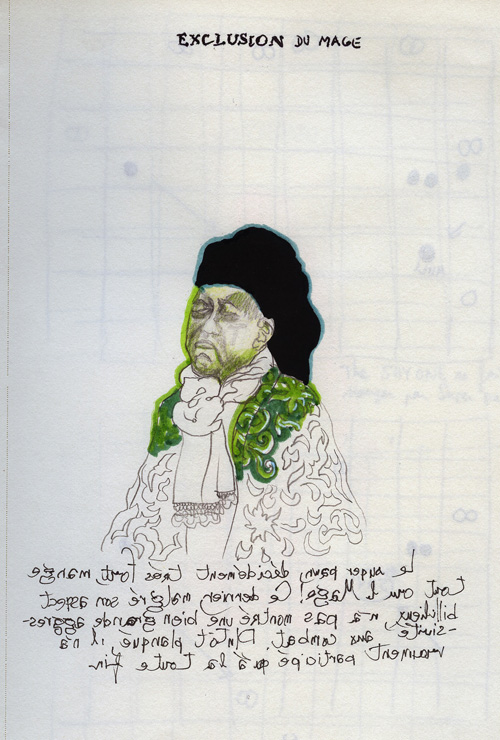 EXCLUSION DU MAGE
Le super pawn, décidément très fort mange
tout cru le Mage! Ce dernier malgré son aspect
bilieux n'a pas montré une bien grande aggres-
-sivité aux combat. Plutôt planqué il n'a
vraiment participé qu'à la toute fin.